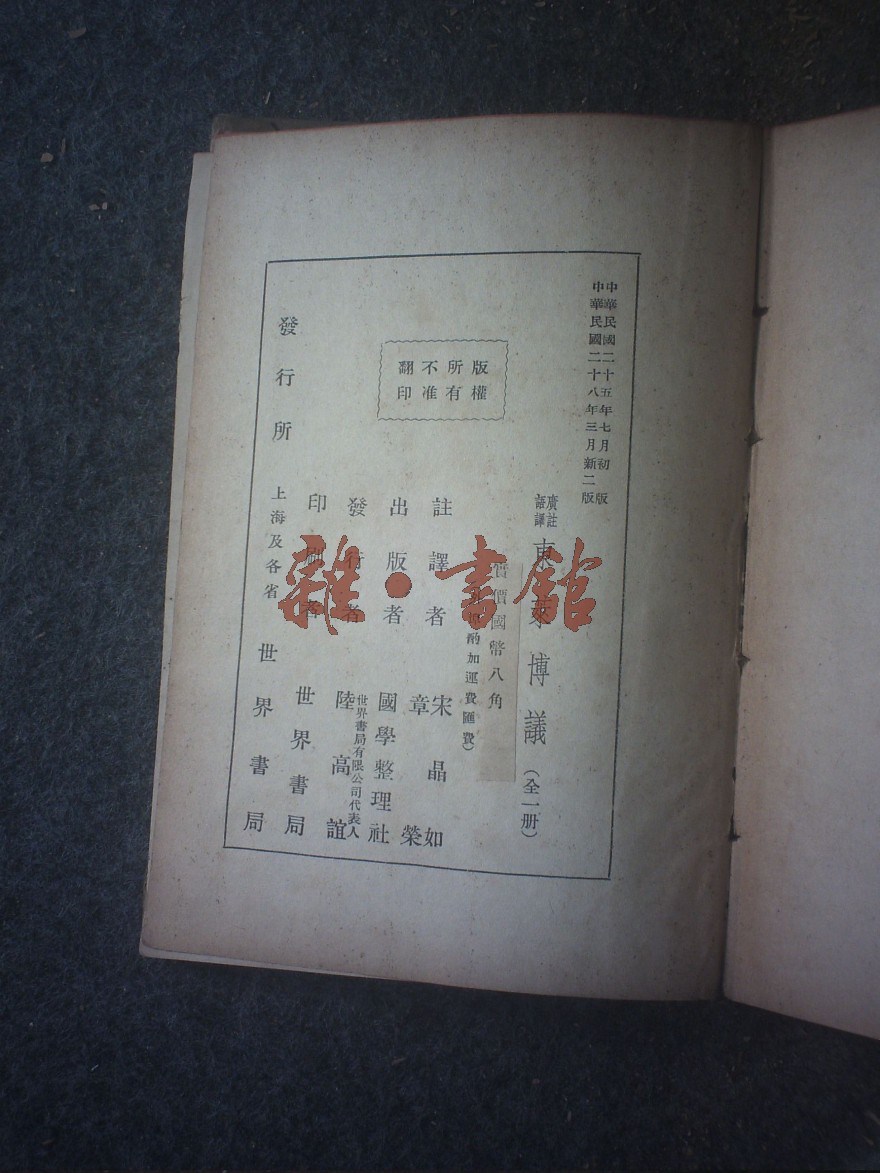 中華民國二十五年七月初版
中華民國二十八年三月新二版
廣註
語譯
東萊博議(全一册)
實價國幣八角
酌加運費匯費)
版權
所有
不准
翻印
註譯者 宋晶如
章榮
出版者 國學整理社
發行者 世界書局有限公司代表人
陸高誼
印刷者 世界書局
發行所 上海及各省 世界書局
雜·書館